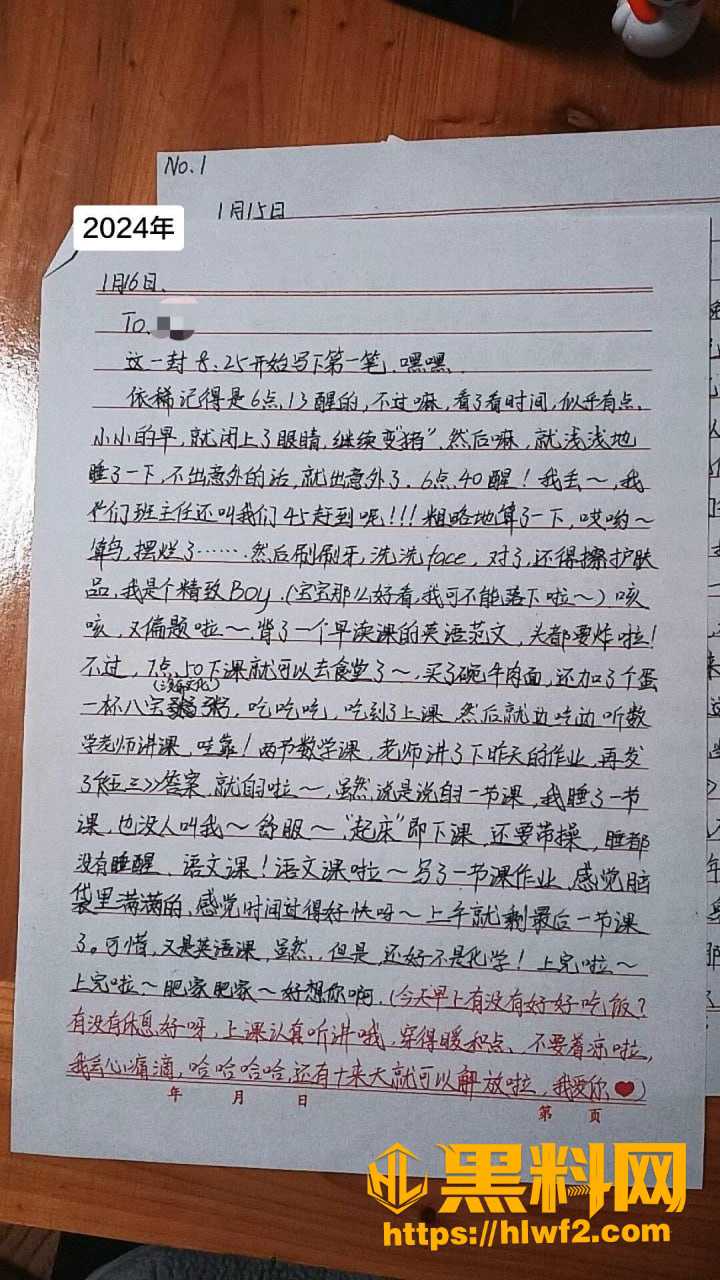 No.1
1月15日
2024年
1月16日.
To.
这一封 8.25开始写下第一笔,嘿嘿.
依稀记得是6点,13醒的,不过嘛,看了看时间,似乎有点,
小小的早,就闭上了眼睛,继续变"猪",然后嘛,就浅浅地
睡了一下,不出意外的话,就出意外了.6点,40醒!我丢~,我
们班主任还叫我们45赶到呢!!!粗略地算了一下,哎哟~
算鸟,摆烂了……然后刷刷牙,洗洗face,对了,还得擦护肤
品,我是个精致Boy.(宝宝那么好看,我可不能落下啦~)咳
咳,又偏题啦~,背了一个早读课的英语范文,头都要炸啦!
不过,7点,50下课就可以去食堂了~,买了碗牛肉面,还加了个蛋
(没文化)
一杯八宝粥,吃吃吃,吃到了上课,然后就边吃边听数
学老师讲课,哇靠!两节数学课,老师讲了下昨天的作业,再发
了《短三》答案,就自习啦~,虽然说是说自习一节课,我睡了一节
课,也没人叫我~舒服~,"起床"即下课,还要带操,睡都
没有睡醒、语文课!语文课啦~写了一节课作业,感觉脑
袋里满满的,感觉时间过得好快呀~上午就剩最后一节课
了。可惜,又是英语课,虽然,但是,还好不是化学!上完啦~
上完啦~肥家肥家~好想你啊.(今天早上有没有好好吃饭?
有没有休息好呀,上课认真听讲哦,穿得暖和点、不要着凉啦,
我会心痛滴,哈哈哈哈,还有十来天就可以解放啦,我爱你❤)
年 月 日
第 页
HL
黑料网
https://hlwf2.com